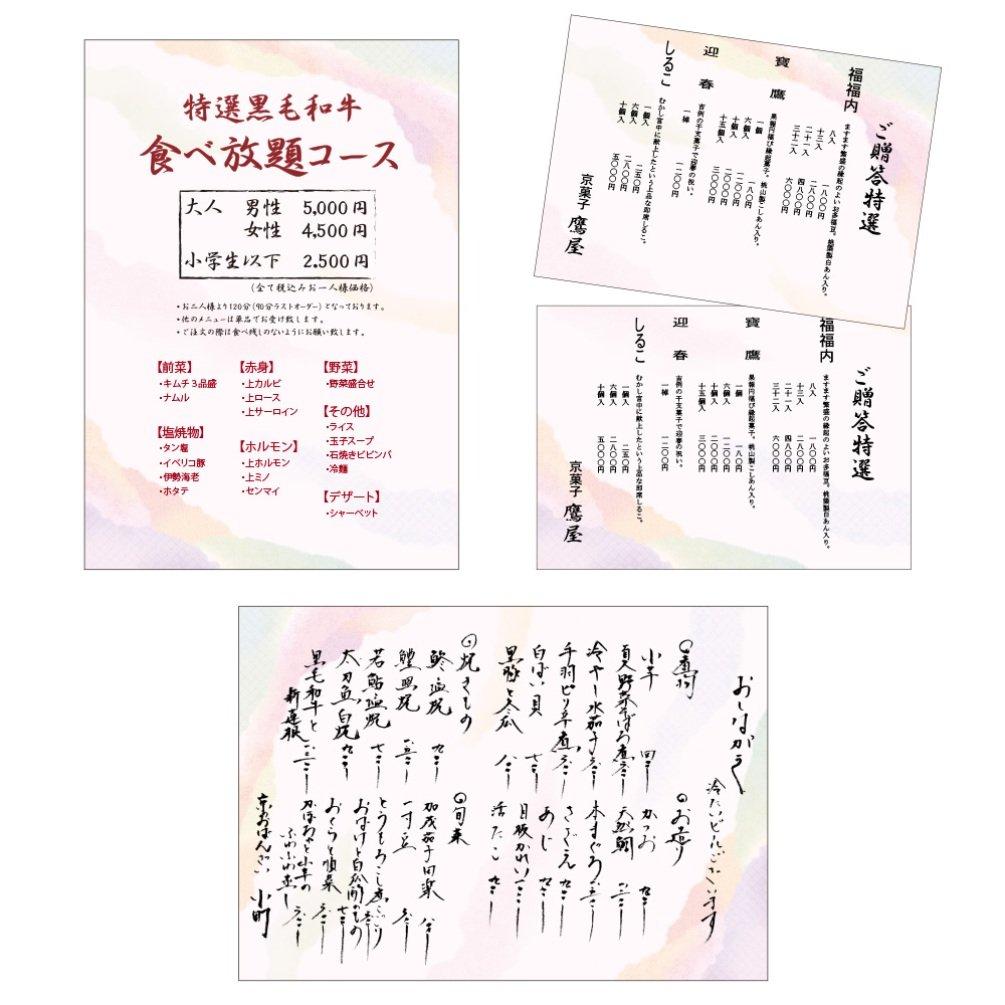 特選黒毛和牛
食べ放題コース
大人 男性 5,000円
女性 4,500円
小学生以下 2.500円
(全て税込みお一人様価格)
・お二人様より120分(90分ラストオーダー)となっております。
・他のメニューは単品でお受け致します。
・ご注文の際は食べ残しのないようにお願い致します。
【前菜】
・キムチ3品盛
・ナムル
【塩焼物】
・タン塩
・イベリコ豚
・伊勢海老
・ホタテ
【赤身】
・上カルビ
・上ロース
・上サーロイン
【ホルモン】
・上ホルモン
・上ミノ
・センマイ
【野菜】
・野菜盛合せ
【その他】
・ライス
・玉子スープ
・石焼きビビンバ
・冷麺
【デザート】
・シャーベット
ご贈答特選
福福内
ますます繁盛の縁起のよいお多福豆。桃山製白あん入り。
八入 一八〇〇円
十三入 二八〇〇円
二十一入 四八〇〇円
三十二入 六〇〇〇円
寶鷹
果報円福び縁起菓子。桃山製こしあん入り。
一個 一八〇円
六個入 一二〇〇円
十個入 二〇〇〇円
十五個入 三〇〇〇円
迎春
吉例の干支菓子で迎春の祝い。
一棹 一二〇〇円
しるこ
むかし宮中に献上したという上品な即席しるこ。
一個入 二五〇円
六個入 二八〇〇円
十個入 五〇〇〇円
京菓子 鷹屋
ご贈答特選
福福内
ますます繁盛の縁起のよいお多福豆。桃山製白あん入り。
八入 一八〇〇円
十三入 二八〇〇円
二十一入 四八〇〇円
三十二入 六〇〇〇円
寶鷹
果報円福び縁起菓子。桃山製こしあん入り。
一個 一八〇円
六個入 一二〇〇円
十個入 二〇〇〇円
十五個入 三〇〇〇円
迎春
吉例の干支菓子で迎春の祝い。
一棹 一二〇〇円
しるこ
むかし宮中に献上したという上品な即席しるこ。
一個入 二五〇円
六個入 二八〇〇円
十個入 五〇〇〇円
京菓子 鷹屋
おしながき
冷たいビールございます
煮物
小芋
夏野菜そぼろ煮
冷やし水茄子
手羽ピリ辛煮
白ばい貝
黒豚と冬瓜
焼きもの
鯵塩焼
鰹照焼
若鮎塩焼
太刀魚白焼
黒毛和牛と
新蓮根
お造り
かつお
天然鯛
本まぐろ
さざえ
あじ
目板かれい
活たこ
旬菜
加茂茄子田楽
一寸豆
とうもろこし
おくらと順菜
かぼちゃと小芋の
ふわふわ蒸し
京おばんざい 小町